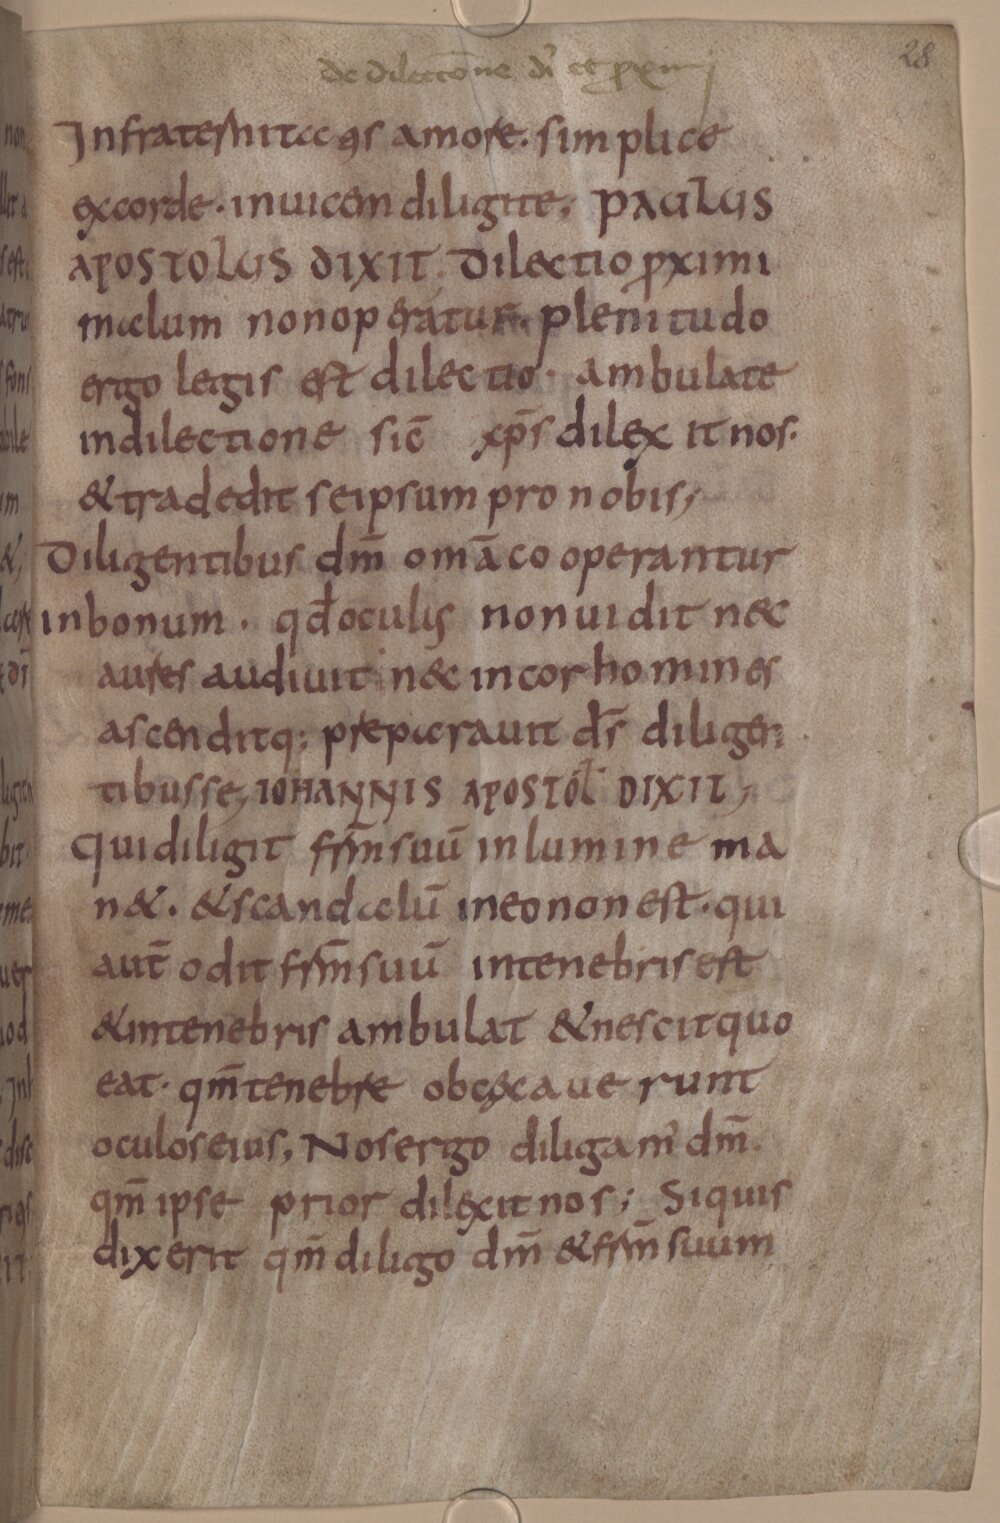 de dilectōne di et pximi
28
Infraternitatis amore. simplice
excorde. inuicem diligite; PAULUS
APOSTOLUS DIXIT. Dilectio pximi
malum non operatur. plenitudo
ergo legis est dilectio. ambulate
indilectione sic̄ xp̄s dilexit nos.
& tradedit seipsum pro nobis;
Diligentibus dm̄ omā cooperantur
inbonum. qđ oculis non uidit nec
aures audiuit nec in cor homines
ascendit q; preparauit dīs diligen
tibus se, IOHANNIS APOSTOL̄ DIXIT;
Qui diligit frm̄ suū in lumine ma
n&. & scandalū in eo non est. qui
aut̄ odit frm̄ suū in tenebris est
& in tenebris ambulat & nescit quo
eat. qm̄ tenebre obcęcauerunt
oculos eius, Nos ergo diligam' dm̄.
qm̄ ipse prior dilexit nos; Siquis
dixerit qm̄ diligo dm̄ & frm̄ suum